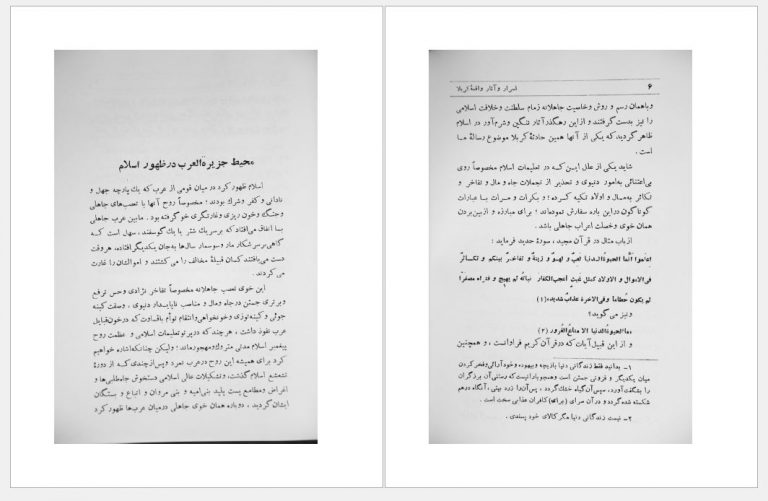 محیط جزیرةالعرب در ظهور اسلام
اسلام ظهور کرد در میان قومی از عرب که یك پارچه جهل و
نادانی و کفر و شرك بودند؛ مخصوصاً روح آنها با تعصب‌های جاهلی
و جنگ و خون ریزی و غارتگری خو گرفته بود. مابین عرب جاهلی
بسا اتفاق می‌افتاد که بر سر یك شتر یا یك گوسفند، سهل است که
گاهی بر سر شکار مار و سوسمار سال‌ها به‌جان یکدیگر افتاده، هر وقت
دست می‌یافتند کسان قبیلهٔ مخالف را می‌کشتند و اموالشان را غارت
می‌کردند.
این خوی تعصب جاهلانه مخصوصاً تفاخر نژادی و حس ترفع
و برتری جستن در جاه و مال و مناصب ناپایدار دنیوی، وصفت کینه
جوئی و کینه‌توزی و خونخواهی و انتقام توأم با قساوت که در خون قبایل
عرب نفوذ داشت، هر چند که در پرتو تعلیمات اسلامی و عظمت روح
پیغمبر اسلام مدتی متروك و مهجور ماند؛ ولیکن چنانکه اشاره خواهیم
کرد برای همیشه این روح در عرب نمرد و پس از چندی که از دورهٔ
تشعشع اسلام گذشت، و تشکیلات عالی اسلامی دستخوش جاه‌طلبی‌ها و
اغراض و مطامع پست پلید بنی‌امیه و بنی مروان و اتباع و بستگان
ایشان گردید، دوباره همان خوی جاهلی در میان عرب‌ها ظهور کرد
۶ اسرار و آثار واقعهٔ کربلا
و با همان رسم و روش و خاصیت جاهلانه زمام سلطنت و خلافت اسلامی
را نیز بدست گرفتند و از این رهگذر آثار ننگین و شرم‌آور در اسلام
ظاهر گردید که یکی از آنها همین حادثهٔ کربلا موضوع رسالهٔ ما
است.
شاید یکی از علل این‌که در تعلیمات اسلام مخصوصاً روی
بی‌اعتنائی به‌امور دنیوی و تحذیر از تجملات جاه و مال و تفاخر و
تکاثر به‌مال و اولاد تکیه کرده؛ و بکرات و مرات با عبارات
گوناگون در این باره سفارش نموده‌اند؛ برای مبارزه و از بین‌بردن
همان خوی و خصلت اعراب جاهلی باشد.
از باب مثال در قرآن مجید، سورهٔ حدید فرماید:
اعلموا أنما الحیوةُالدنیا لعبٌ و لهوٌ و زینةٌ و تفاخرٌ بینکم و تکاثرٌ
فی‌الاموال و الاولاد کمثل غیثٍ أعجب‌الکفار نباتُه ثم یهیج و فتراه مصفراً
ثم یکون حُطاماً و فی‌الاخرة عذابٌ شدید»(۱)
و نیز می‌گوید؟
«ماالحیوةُالدنیا الا متاعُ‌الغُرور (۲)
و از این قبیل آیات که در قرآن کریم فراوانست، و همچنین
۱ـ بدانید فقط زندگانی دنیا بازیچه و بیهوده و خودآرائی و فخر کردن
میان یکدیگر و فزونی جستن است و همچو بارانیست که رستنی آن، برزگران
را بشگفت آورد، سپس آن گیاه خشك گردد، پس آن را زرد بینی، آنگاه در هم
شکسته شده گردد و در آن سرای (برای) کافران عذابی سخت است.
۲ـ نیست زندگانی دنیا مگر کالای خود پسندی.